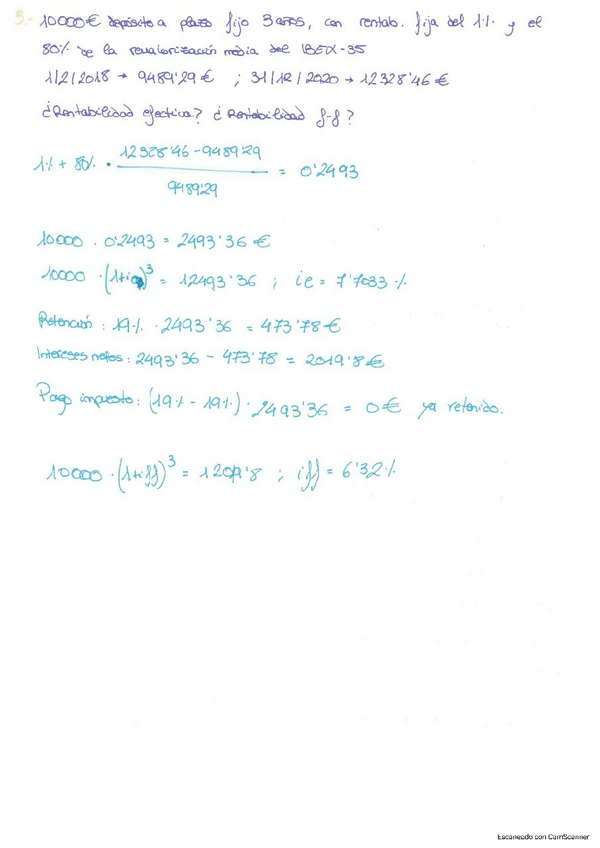 3.- 10000€ depósito a plazo fijo 3 años, con rentab. fija del 1% y el
80% de la revalorización media del IBEX-35
1/2/2018 → 9489'29€ ; 31/12/2020 → 12328'46€
¿Rentabilidad efectiva? ¿Rentabilidad f-f?
1% + 80% · (12328'46 - 9489'29) / 9489'29 = 0'2493
10000 . 0'2493 = 2493'36€
10000 · (1+ie)³ = 12493'36 ; ie = 7'7033%
Retención: 19% · 2493'36 = 473'78€
Intereses netos: 2493'36 - 473'78 = 2019'8€
Pago impuesto: (19% - 19%) · 2493'36 = 0€ ya retenido.
10000 · (1+iff)³ = 12019'8 ; iff = 6'32%
Escaneado con CamScanner